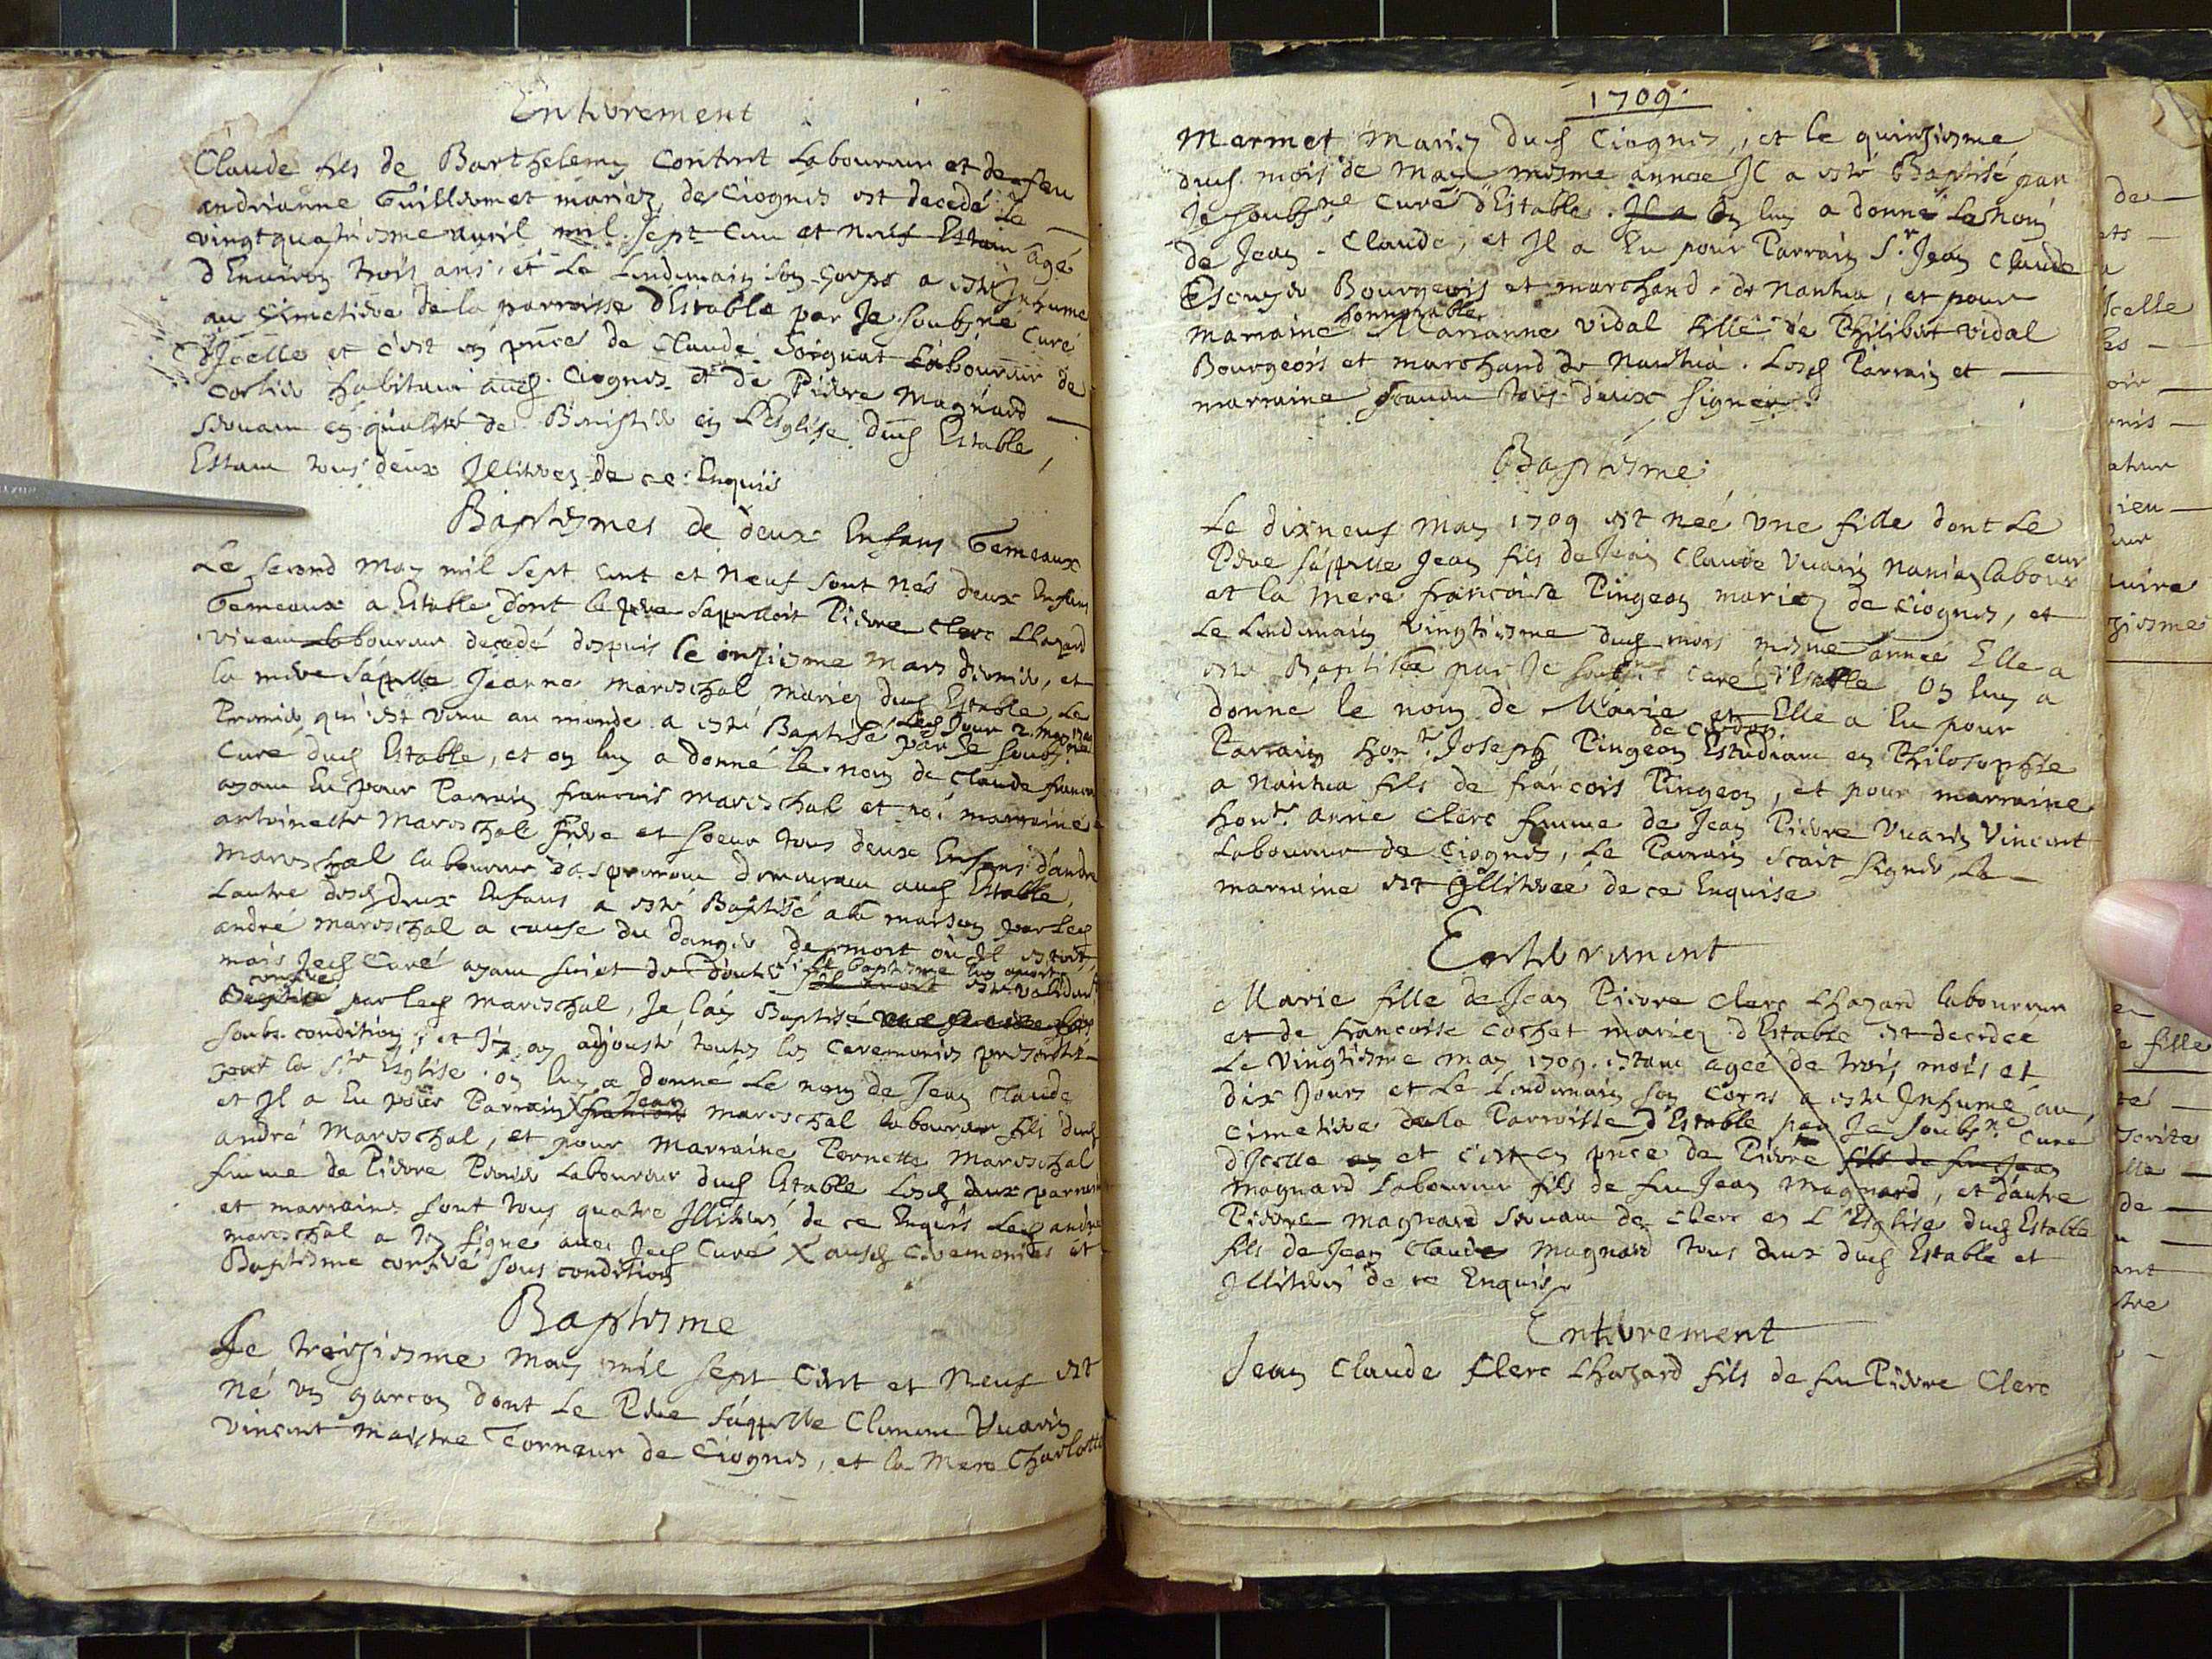 Enterrement
Claude fils de Barthelemy Content Laboureur et de feu
andrianne Guillermet mariez de Ciognes est decedé Le
vingtquatriesme avril mil sept Cent et neuf Estan agé
d'Environ trois ans, et Le Lendemain son Corps a esté Inhumé
au Cimetiere de la parroisse d'Estable par Je soubs.né Curé
d'Icelle et c'est en pñce de Claude Soignat Laboureur de
habitant aud. Ciognes et de Pierre Magnard
servant en qualité de en L'Esglise dud Estable,
Estant tous deux Illiterez de ce Enquis
Baptesmes de deux Enfans Gemeaux
Le second May mil sept cent et Neuf sont nés deux Enfans
Gemeaux a Estable dont le pere sappelloit Pierre Clerc Lhazard
vivant laboureur decedé despuis le onziesme mars dernier, et
la mere sappelle Jeanne mareschal mariez dud Estable. Le
Premier qui est venu au monde a esté Baptisé Led Jour 2. may 1709 par Je soubs.né
Curé dud Estable, et on luy a donné le nom de Claude francois
ayant Eu pour Parrain francois mareschal et marraine
antoinette Mareschal frere et soeur tous deux Enfans d'andré
Mareschal laboureur demeurant aud Estable,
Lautre desd deux Enfans a esté Baptisé a la maison par Led
andré mareschal a cause du danger de mort ou Il estoit,
mais Jed Curé ayant suiet de douter si le baptesme luy avoit esté validement
conferé par Led Mareschal, Je lay Baptisé
soubs condition, et J'y ay adjousté toutes les ceremonies prescrites
par la Ste Eglise. on luy a donné Le nom de Jean Claude
et Il a Eu pour Parrain X francois Jean mareschal laboureur fils dud
andré Mareschal, et pour Marraine Pernette Mareschal
femme de Pierre Laboureur dud Estable Lesd deux parrains
et marraines sont tous quatre Illiterés de ce Enquis Led andré
mareschal a icy signé avec Jed Curé X ausd ceremonies et
Baptesme conferé sous condition
Baptesme
Le treiziesme May mil sept Cent et Neuf est
né un garcon dont Le Pere s'appelle Clement Vuarin
Vincent Maistre Torneur de Ciognes, et la Mere Charlotte
1709.
Mermet Mariez dud Ciognes, et le quinziesme
dud. mois de May mesme année Il a esté Baptisé par
Je soubs.né Curé d'Estable. Il a On luy a donné Le nom
de Jean Claude, et Il a Eu pour Parrain Sr. Jean Claude
Bourgeois et marchand de Nantua, et pour
marraine honnorable Marianne Vidal fille de Philibert Vidal
Bourgeois et marchand de Nantua. Lesd Parrain et
marraine scavent tous deux signer.
Baptesme
Le dixneuf May 1709 est née Une fille dont Le
Pere s'appelle Jean fils de Jean Claude Vuarin Nanian laboureur
et la Mere francoise Pingeon mariez de Ciognes, et
Le Lendemain vingtiesme dud mois mesme année Elle a
esté Baptisée par Je soubs.né Curé d'Estable On luy a
donné le nom de Marie et Elle a Eu pour
Parrain Hon.e Joseph Pingeon de Cerdon Estudiant en Philosophie
a Nantua fils de francois Pingeon, et pour marraine
hon.e anne Clerc femme de Jean Pierre Vuarin Vincent
Laboureur de Ciognes, Le Parrain scait signer La
marraine est Illiterée de ce Enquise
Enterrement
Marie fille de Jean Pierre Clerc Lhazard laboureur
et de francoise Cochet mariez d'Estable est decedée
Le vingtiesme may 1709. estant agée de trois mois et
dix Jours et Le Lendemain son Corps a esté Inhumé au
Cimetiere de la Parroisse d'Estable par Je soubs.né Curé
d'Icelle en et c'est en pñce de Pierre fils de feu Jean
Magnard Laboureur fils de feu Jean Magnard, et d'autre
Pierre Magnard servant de Clerc en L'Esglise dud Estable
fils de Jean Claude Magnard tous deux dud Estable et
Illiterés de ce Enquis
Enterrement
Jean Claude Clerc Lhazard fils de feu Pierre Clerc